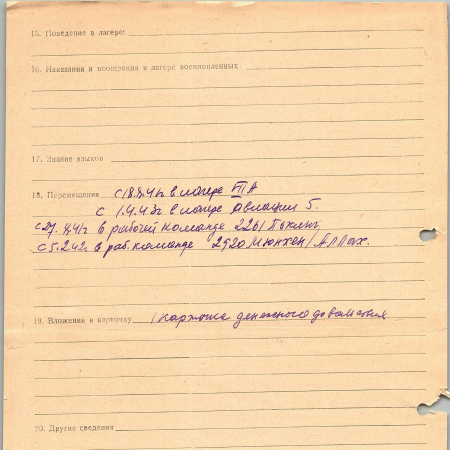 15. Поведение в лагере:
16. Наказания и поощрения в лагере военнопленных
17. Знание языков
18. Перемещения с 18.8.41г в лагере VII А
с 1.4.43г в лагере Авиация 5.
с 27.8.41г в рабочей команде 2261
с 5.2.42г. в раб. команде 2920 Мюнхен/Аллах.
19. Вложение в карточку 1 карточка денежного довольствия
20. Другие сведения